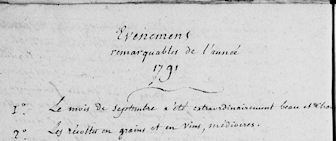 Evénemens
remarquables de l'année
1791
1º. Le mois de septembre a été extraordinairement beau et
2º. Les récoltes en grains et en vins, médiocres.